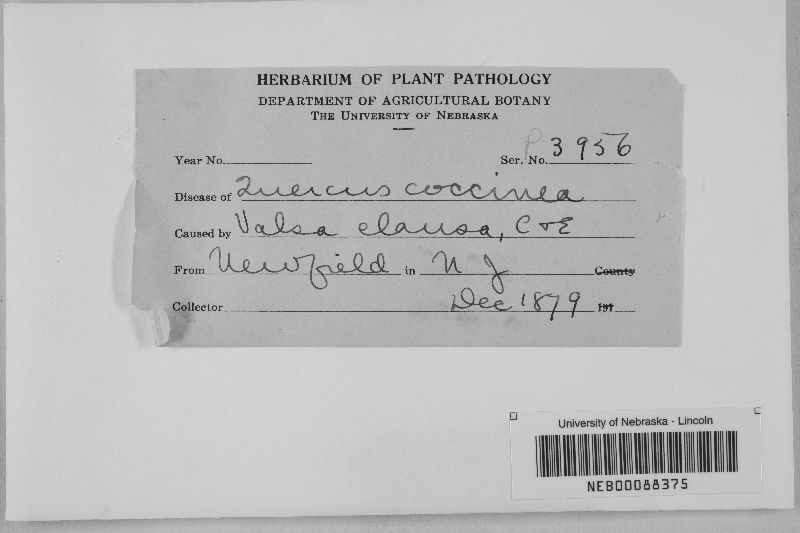 HERBARIUM OF PLANT PATHOLOGY
DEPARTMENT OF AGRICULTURAL BOTANY
THE UNIVERSITY OF NEBRASKA
Year No. Ser. No. P 3956
Disease of Quercus coccinea
Caused by Valsa clausa, C & E
From Newfield in N J County
Collector Dec 1879 191
University of Nebraska - Lincoln
NEB00088375